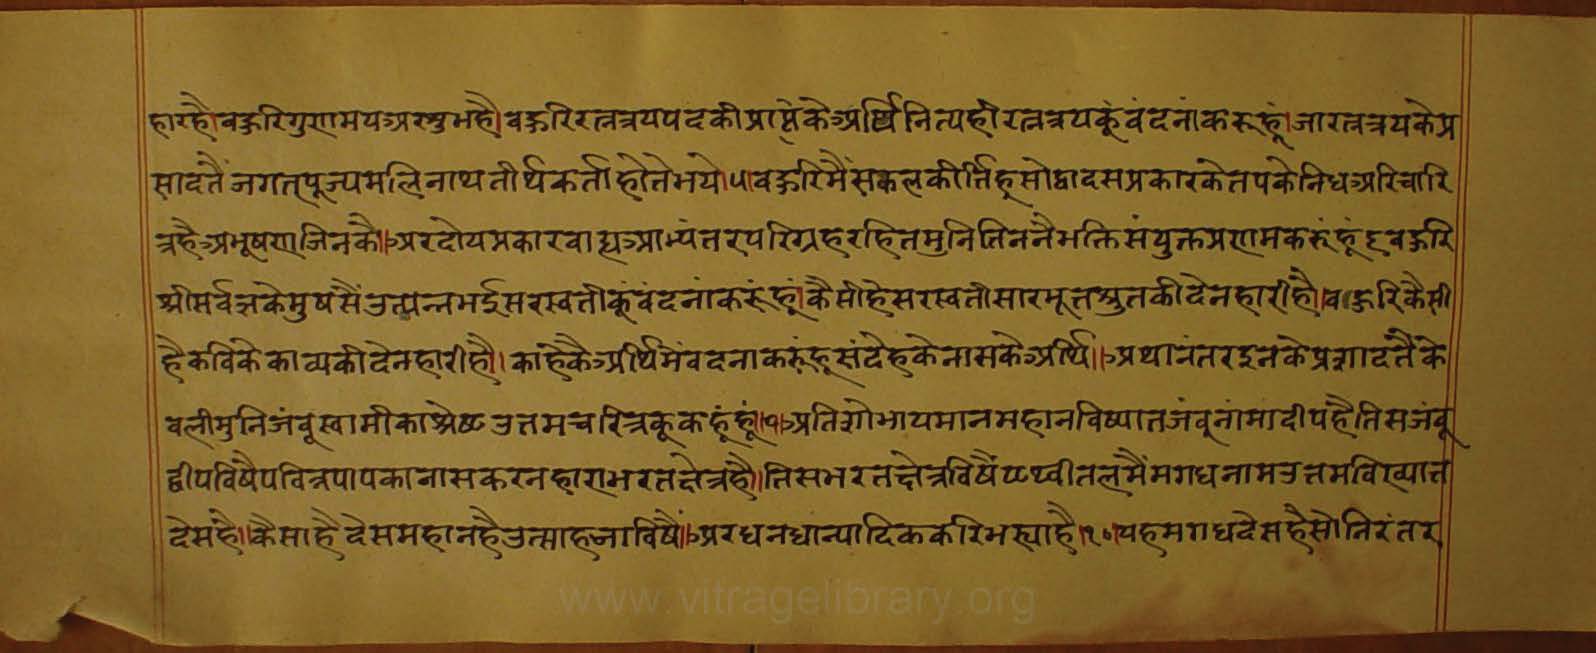 हारहै।वहुरिगुणमयअरशुभहै।वहुरिरत्नत्रयपदकीप्राप्तिकेअर्थिनित्यहीरत्नत्रयकूंवंदनांकरूहूं।जारत्नत्रयकेप्र
सादतैंजगतपूज्यमलिनाथतीर्थकर्ताहोतेभये।५।वहुरिमैंसकलकीर्त्तिहूसोद्वादसप्रकारकेतपकेनिधअरिचारि
त्रहैअभूषणजिनकै।अरदोयप्रकारवाह्यआभ्यंतरपरिग्रहरहितमुनितिननैभक्तिसंयुक्तप्रणामकरूंहूं६वहुरि
श्रीसर्वज्ञकेमुषसैंउत्पन्नभईसरस्वतीकूंवंदनांकरूंहूं।कैसीहेसरस्वतीसारभूतश्रुतकीदेनहारीहै।वहुरिकैसी
हैकविकेकाव्यकीदेनहारीहै।काहेकैअर्थिमंवदनाकरूंहूसंदेहकेनासकेअर्थि।अथानंतरइनकेप्रशादतैके
वलीमुनिजंवूस्वामीकाश्रेष्टउत्तमचरित्रकूकहूंहूं।अतिशोभायमानमहानविष्यातजंवूनांमादीपहैतिसजंवू
द्वीपविषैपवित्रपापकानासकरनहाराभरतक्षेत्रहै।तिसभरतक्षेत्रविषैंपृथ्वीतलमैंमगधनामउत्तमविख्यात
देसहै।कैसाहैदेसमहानहैउत्साहजाविषैं।अरधनधान्यादिककरिभस्याहै।१०।यहमगधदेसहैसोनिरंतर
www.vitragelibrary.org